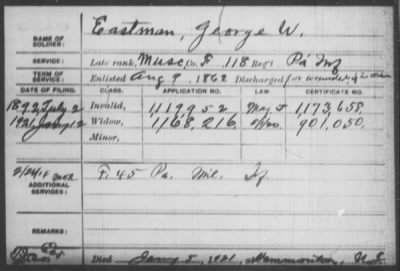 NAME OF SOLDIER: Eastman, George W.
SERVICE: Late rank, Musc, Co. F, 118 Reg't Pa Inf
TERM OF SERVICE: Enlisted Aug 9, 1862 Discharged for wounds
DATE OF FILING. CLASS. APPLICATION NO. LAW. CERTIFICATE NO.
1892, July 2 Invalid, 1,119,952 1,173,658.
1921, Jany 12 Widow, 1,168,216. 901,050.
Minor,
ADDITIONAL SERVICES: F. 45 Pa. Mil. Inf
REMARKS:
Died Jany 5, 1921, at Hammonton, N.J.